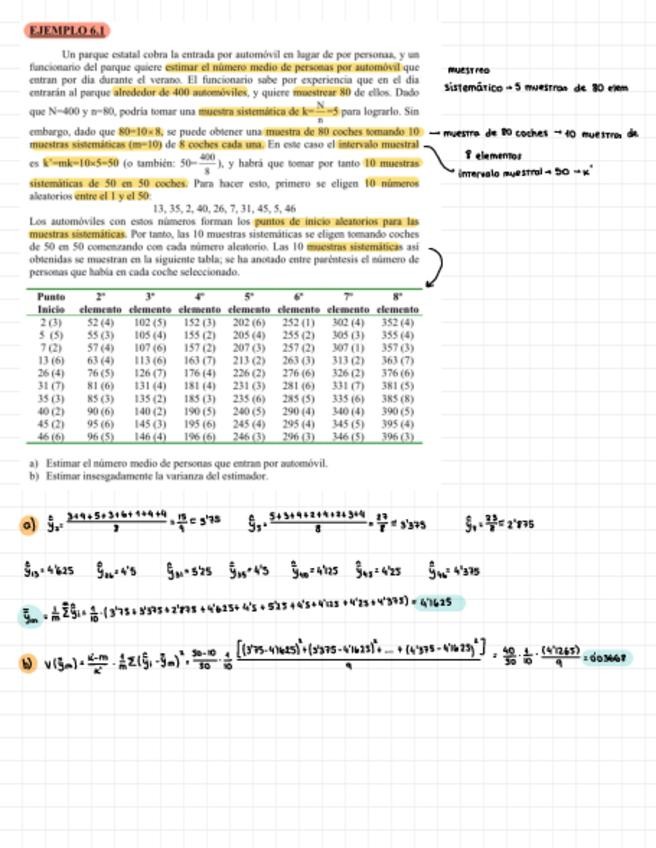 EJEMPLO 6.1
Un parque estatal cobra la entrada por automóvil en lugar de por persona, y un
funcionario del parque quiere estimar el número medio de personas por automóvil que
entran por día durante el verano. El funcionario sabe por experiencia que en el día
entrarán al parque alrededor de 400 automóviles, y quiere muestrear 80 de ellos. Dado
que N=400 y n=80, podría tomar una muestra sistemática de k=N/n=5 para lograrlo. Sin
embargo, dado que 80=10×8, se puede obtener una muestra de 80 coches tomando 10
muestras sistemáticas (m=10) de 8 coches cada una. En este caso el intervalo muestral
es k'=mk=10×5=50 (o también: 50=400/8), y habrá que tomar por tanto 10 muestras
sistemáticas de 50 en 50 coches. Para hacer esto, primero se eligen 10 números
aleatorios entre el 1 y el 50:
13, 35, 2, 40, 26, 7, 31, 45, 5, 46
Los automóviles con estos números forman los puntos de inicio aleatorios para las
muestras sistemáticas. Por tanto, las 10 muestras sistemáticas se eligen tomando coches
de 50 en 50 comenzando con cada número aleatorio. Las 10 muestras sistemáticas así
obtenidas se muestran en la siguiente tabla; se ha anotado entre paréntesis el número de
personas que había en cada coche seleccionado.
muestreo
sistemático → 5 muestras de 80 elem
muestra de 80 coches → 10 muestras de
8 elementos
intervalo muestral → 50 → k'
Punto 2º 3º 4º 5º 6º 7º 8º
Inicio elemento elemento elemento elemento elemento elemento elemento
2 (3) 52 (4) 102 (5) 152 (3) 202 (6) 252 (1) 302 (4) 352 (4)
5 (5) 55 (3) 105 (4) 155 (2) 205 (4) 255 (2) 305 (3) 355 (4)
7 (2) 57 (4) 107 (6) 157 (2) 207 (3) 257 (2) 307 (1) 357 (3)
13 (6) 63 (4) 113 (6) 163 (7) 213 (2) 263 (3) 313 (2) 363 (7)
26 (4) 76 (5) 126 (7) 176 (4) 226 (2) 276 (6) 326 (2) 376 (6)
31 (7) 81 (6) 131 (4) 181 (4) 231 (3) 281 (6) 331 (7) 381 (5)
35 (3) 85 (3) 135 (2) 185 (3) 235 (6) 285 (5) 335 (6) 385 (8)
40 (2) 90 (6) 140 (2) 190 (5) 240 (5) 290 (4) 340 (4) 390 (5)
45 (2) 95 (6) 145 (3) 195 (6) 245 (4) 295 (4) 345 (5) 395 (4)
46 (6) 96 (5) 146 (4) 196 (6) 246 (3) 296 (3) 346 (5) 396 (3)
a) Estimar el número medio de personas que entran por automóvil.
b) Estimar insesgadamente la varianza del estimador.
a) ŷ₂= 3+4+5+3+6+1+4+4/8 = = 3'75 ŷ₅= 5+3+4+2+4+2+3+4/8 = 27/8 = 3'375 ŷ₇= 23/8 = 2'875
ŷ₁₃= 4'625 ŷ₂₆= 4'5 ŷ₃₁= 5'25 ŷ₃₅= 4'5 ŷ₄₀= 4'125 ŷ₄₅= 4'25 ŷ₄₆= 4'375
ȳₘ = 1/m Σŷᵢ = 1/10 · (3'75+3'375+2'875+4'625+4'5+5'25+4'5+4'125+4'25+4'375) = 4'1625
b) V(ȳₘ) = k'-m/k' · 1/m Σ(ŷᵢ-ȳₘ)² = 50-10/50 · 1/10 [(3'75-4'1625)²+(3'375-4'1625)²+ ... +(4'375-4'1625)²]/9 = 40/50 · 1/10 · (4'1265)/9 = 0'03668